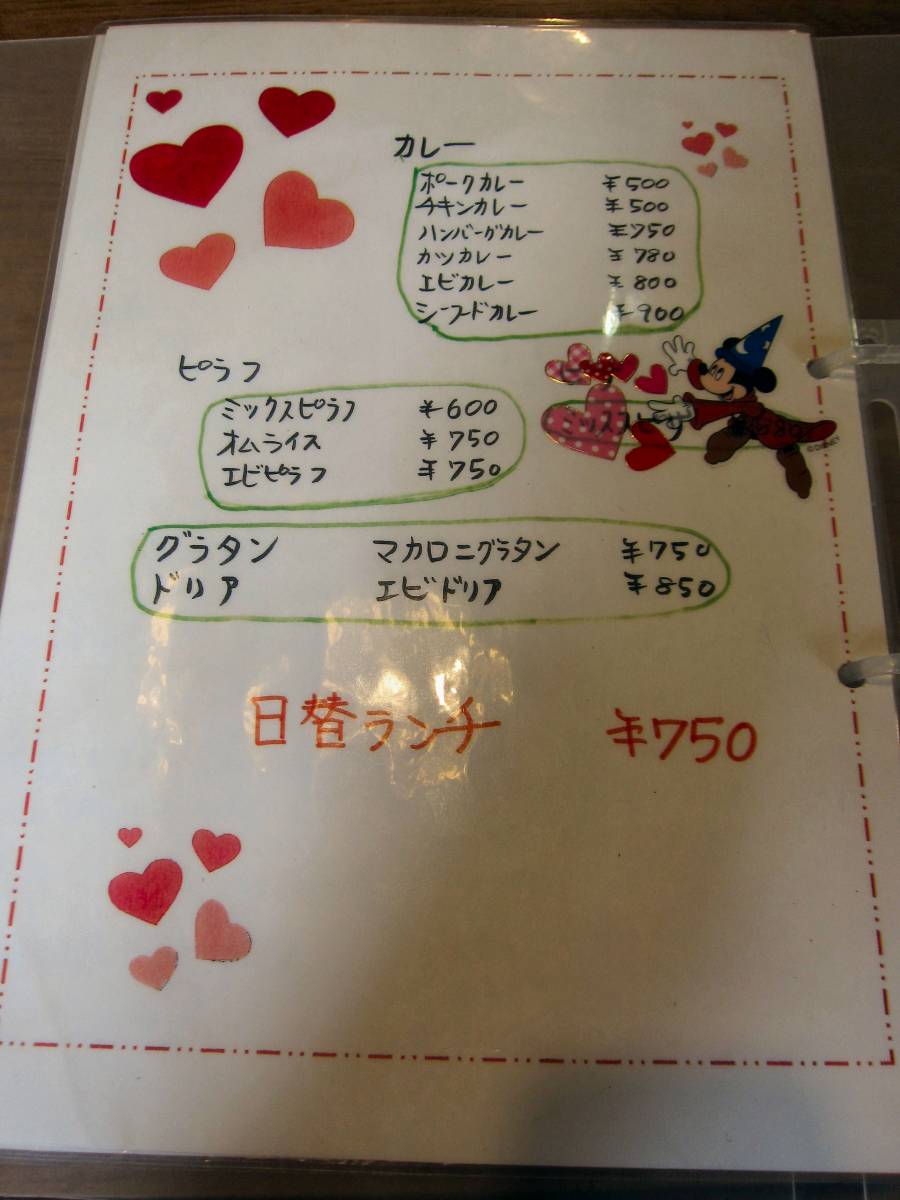 カレー
ポークカレー ¥500
チキンカレー ¥500
ハンバーグカレー ¥750
カツカレー ¥780
エビカレー ¥800
シーフードカレー ¥900
ピラフ
ミックスピラフ ¥600
オムライス ¥750
エビピラフ ¥750
グラタン マカロニグラタン ¥750
ドリア エビドリア ¥850
日替ランチ ¥750
©DISNEY